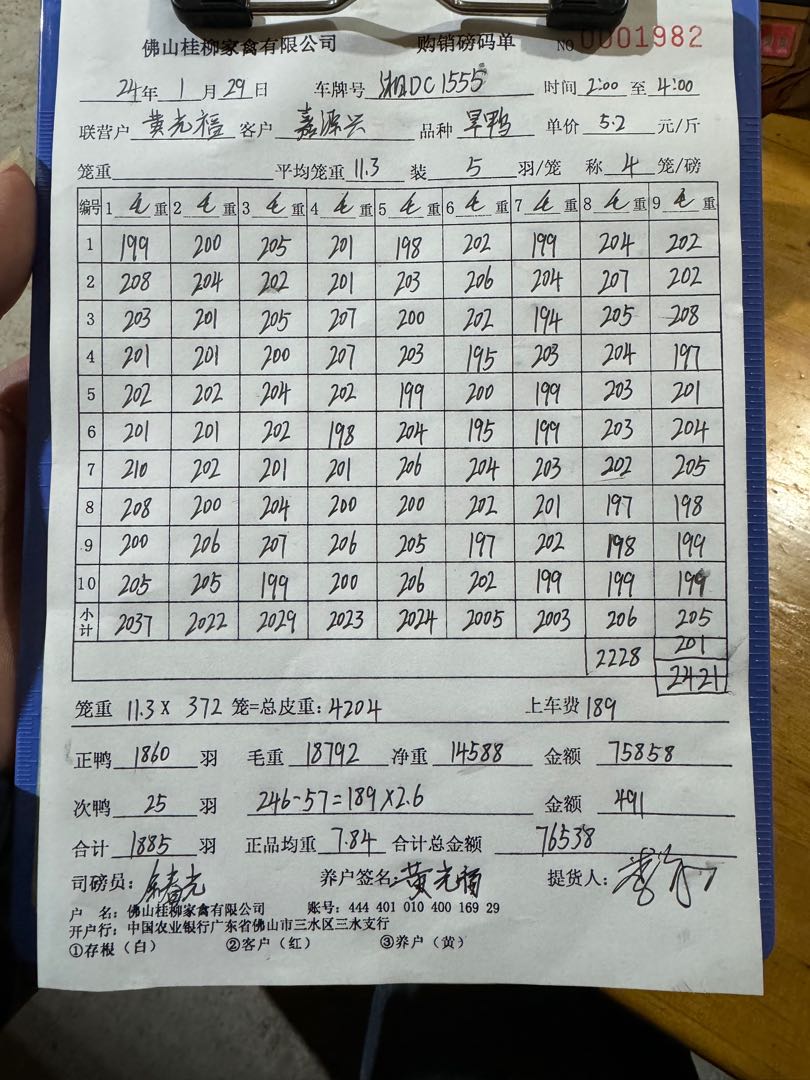 佛山桂柳家禽有限公司 购销磅码单 NO 0001982
24年 1月29日 车牌号 湘DC1555 时间 2:00 至 4:00
联营户 黄光福 客户 嘉源兴 品种 旱鸭 单价 5.2 元/斤
笼重 平均笼重 11.3 装 5 羽/笼 称 4 笼/磅
编号 1 毛重 2 毛重 3 毛重 4 毛重 5 毛重 6 毛重 7 毛重 8 毛重 9 毛重
1 199 200 205 201 198 202 199 204 202
2 208 204 202 201 203 206 204 207 202
3 203 201 205 207 200 202 194 205 208
4 201 201 200 207 203 195 203 204 197
5 202 202 204 202 199 200 199 203 201
6 201 201 202 198 204 195 199 203 204
7 210 202 201 201 206 204 203 202 205
8 208 200 204 200 200 202 201 197 198
9 200 206 207 206 205 197 202 198 199
10 205 205 199 200 206 202 199 199 199
小计 2037 2022 2029 2023 2024 2005 2003 206 205
2228 201
2421
笼重 11.3 X 372 笼=总皮重: 4204 上车费 189
正鸭 1860 羽 毛重 18792 净重 14588 金额 75858
次鸭 25 羽 246-57=189×2.6 金额 491
合计 1885 羽 正品均重 7.84 合计总金额 76538
司磅员: 养户签名: 黄光福 提货人:
户 名: 佛山桂柳家禽有限公司 账号: 444 401 010 400 169 29
开户行: 中国农业银行广东省佛山市三水区三水支行
①存根(白) ②客户(红) ③养户(黄)